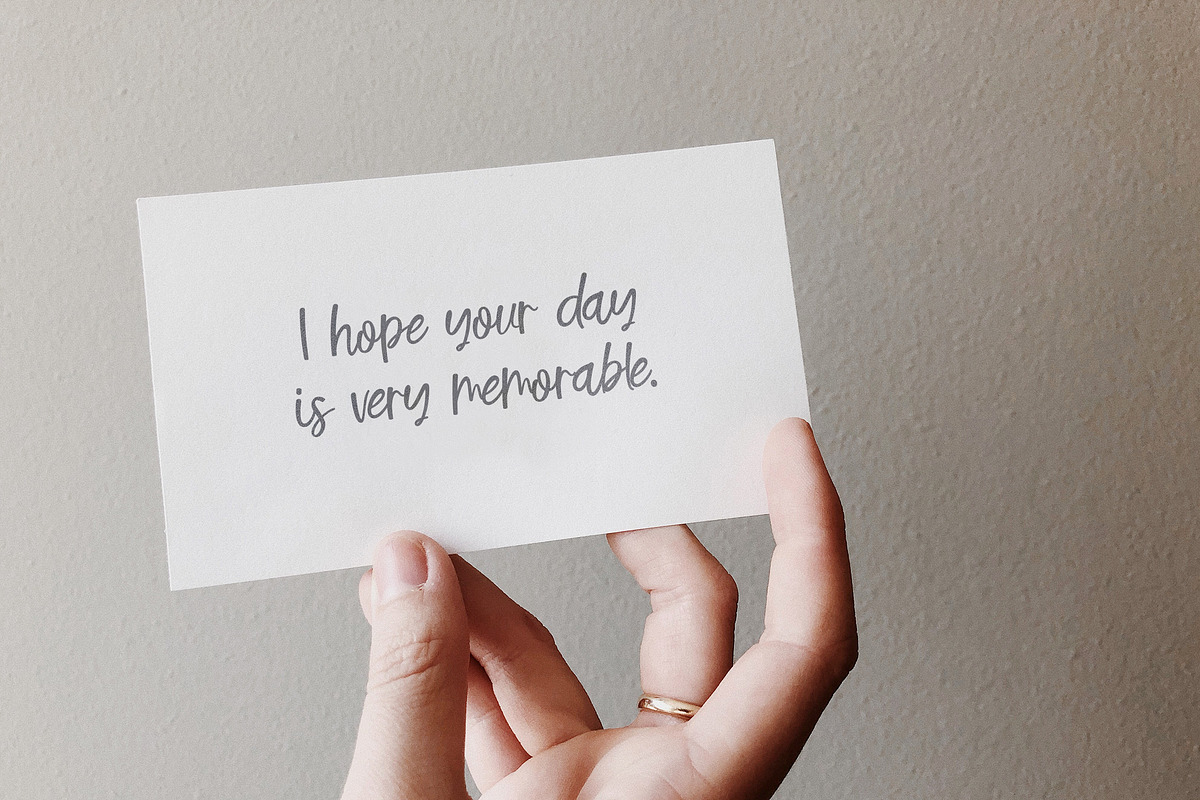 I hope your day
is very memorable.